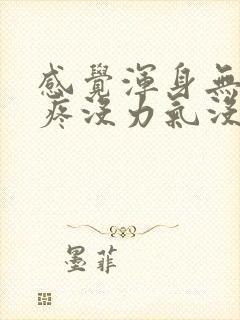 感覺渾身無
疼沒力氣沒
墨菲